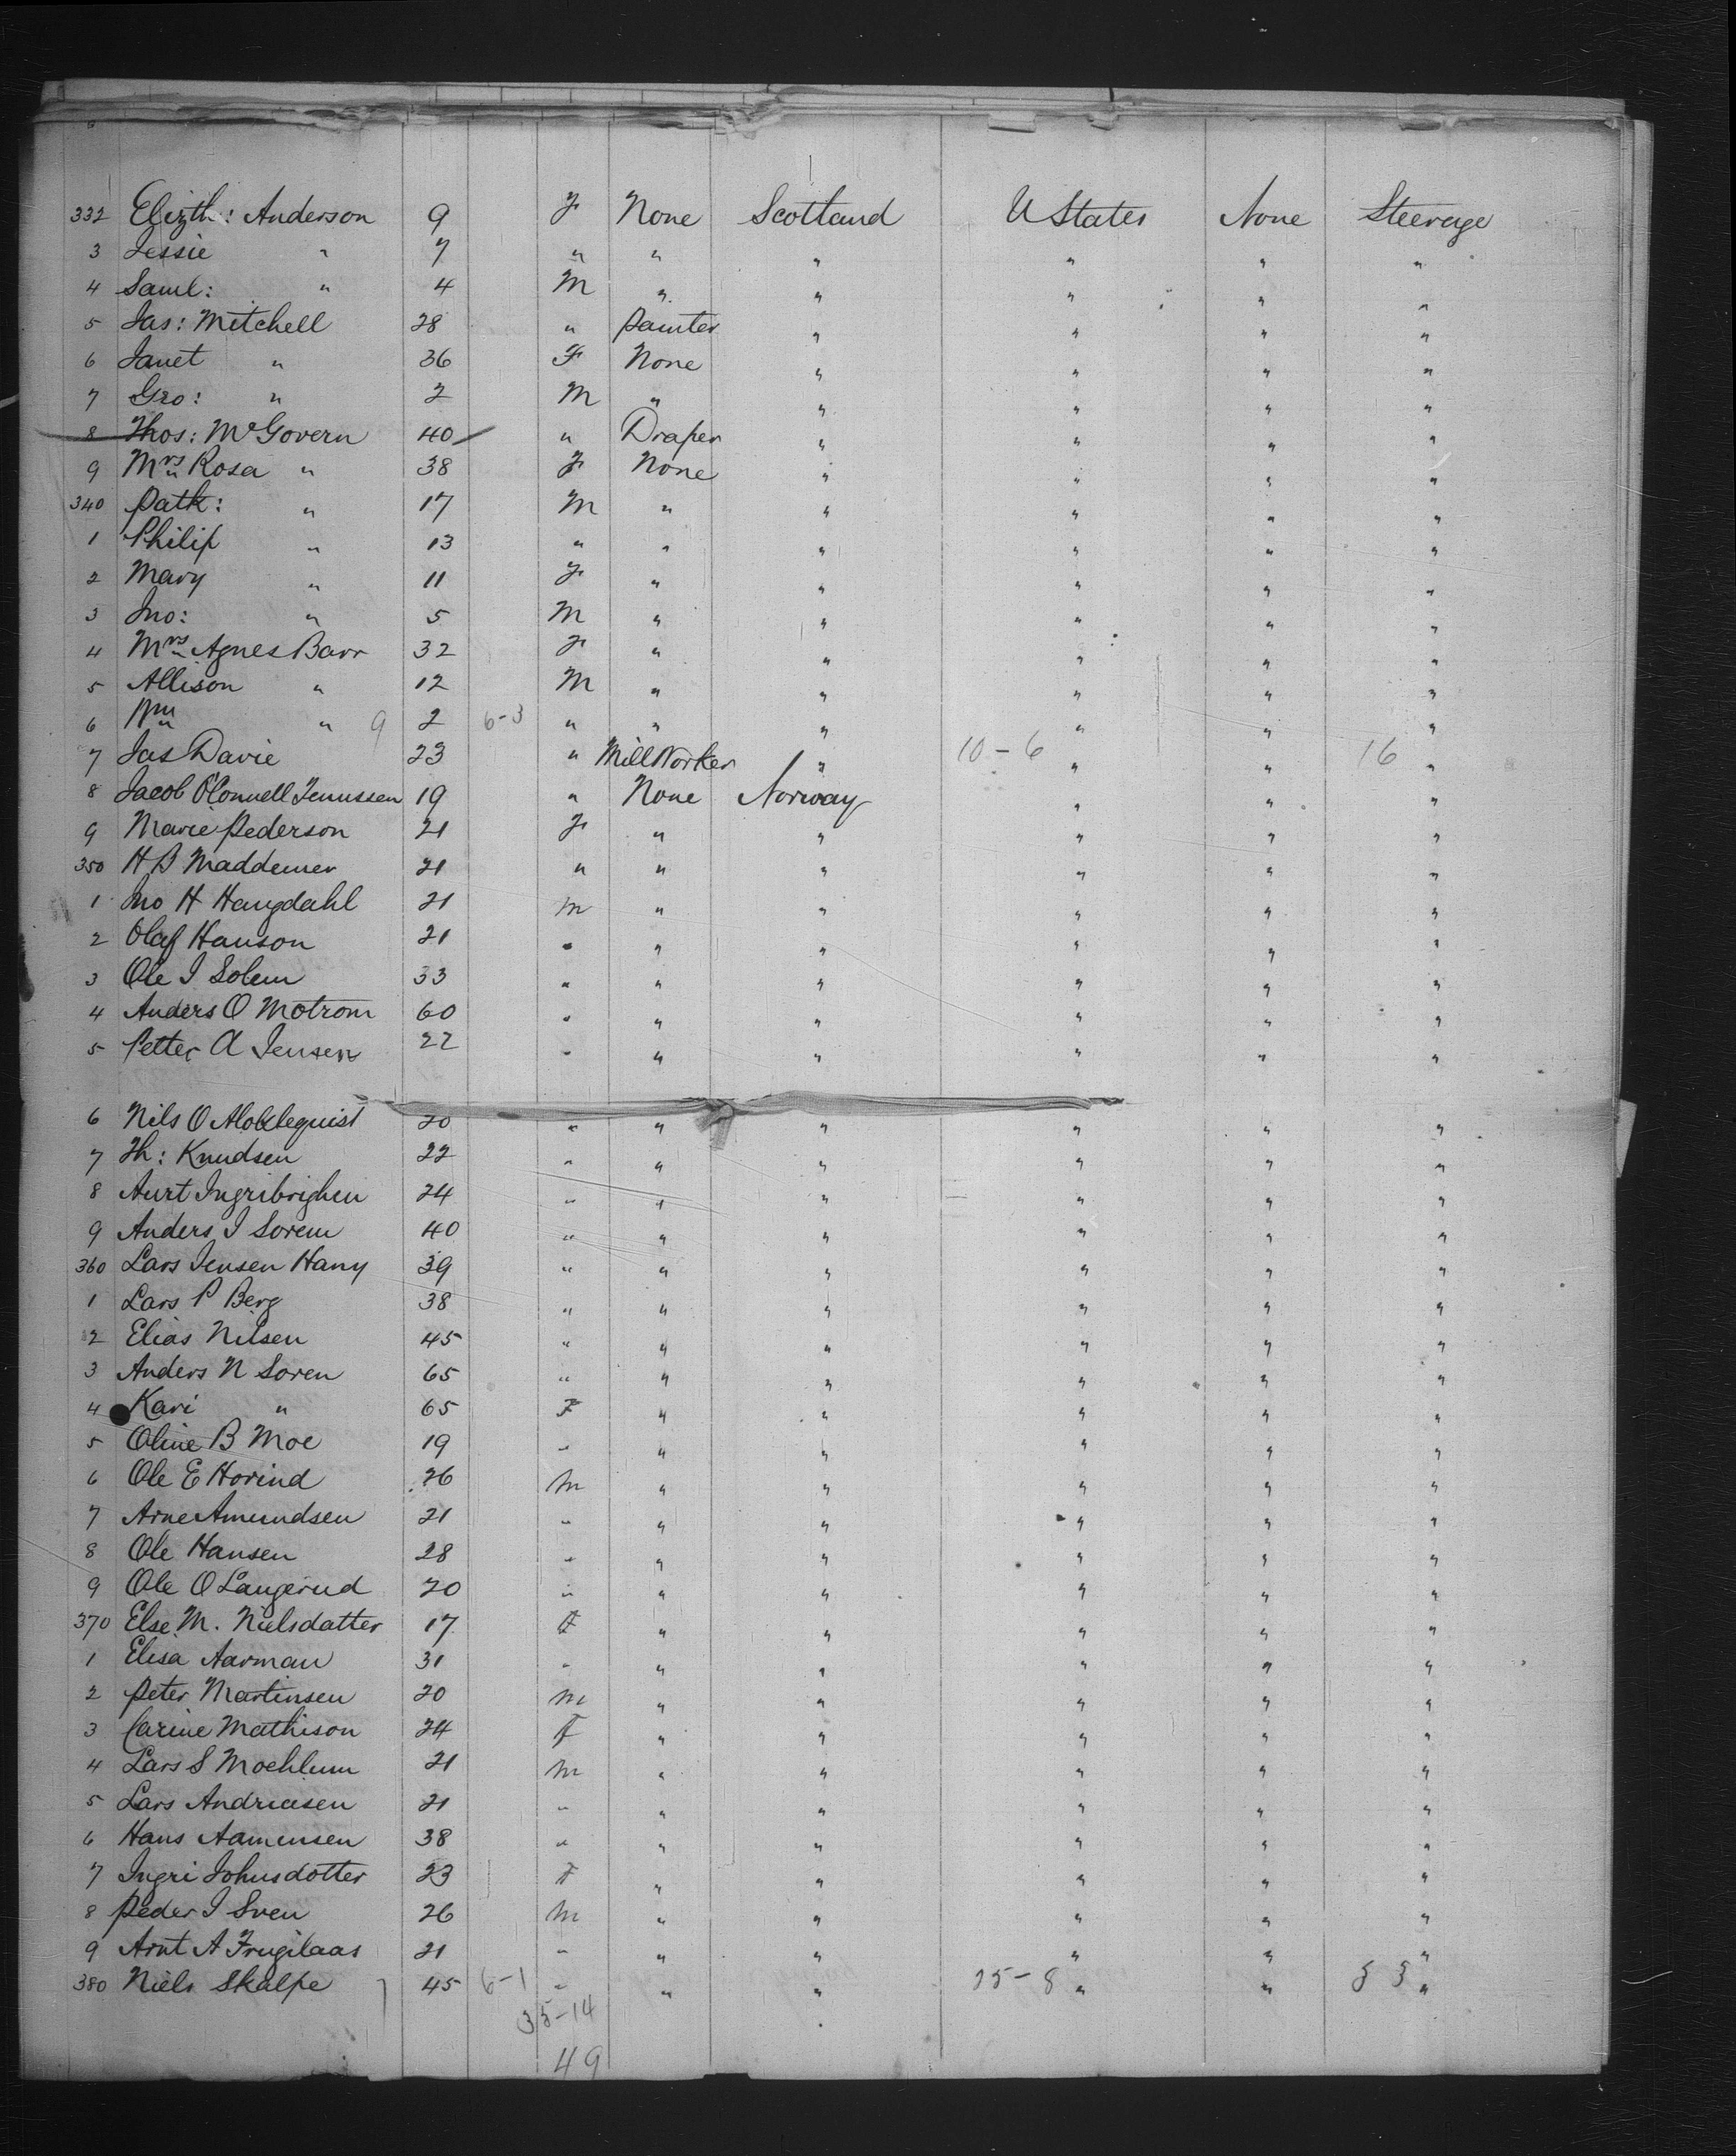 332 Elizth: Anderson 9 F None Scotland U States None Steerage
3 Jessie " 7 " " " " " "
4 Saml: " 4 M " " " " "
5 Jas: Mitchell 28 " Painter " " " "
6 Janet " 36 F None " " " "
7 Geo: " 2 M " " " " "
8 Thos: McGovern 40 " Draper " " " "
9 Mrs Rosa " 38 F None " " " "
340 Patk: " 17 M " " " " "
1 Philip " 13 " " " " " "
2 Mary " 11 F " " " " "
3 Jno: " 5 M " " " " "
4 Mrs Agnes Barr 32 F " " " " "
5 Allison " 12 M " " " " "
6 Wm " 9 2 6-3 " " " " " "
7 Jas Davie 23 " Mill Worker " 10-6 " " 16 "
8 Jacob O'Connell 19 " None Norway " " "
9 Marie Pederson 21 F " " " " "
350 H B Maddemer 21 " " " " " "
1 Jno H Haugdahl 21 M " " " " "
2 Olaf Hanson 21 " " " " " "
3 Ole J Solem 33 " " " " " "
4 Anders O Motrom 60 " " " " " "
5 Petter A Jensen 22 " " " " " "
6 Nils O 20 " " " " " "
7 Th: Knudsen 22 " " " " " "
8 24 " " " " " "
9 Anders J Sorem 40 " " " " " "
360 Lars Jensen Hany 39 " " " " " "
1 Lars P Berg 38 " " " " " "
2 Elias Nilsen 45 " " " " " "
3 Anders N Soren 65 " " " " " "
4 Kari " 65 F " " " " "
5 Oline B Moe 19 " " " " " "
6 Ole E Horind 26 M " " " " "
7 Arne Amundsen 21 " " " " " "
8 Ole Hansen 28 " " " " " "
9 Ole O Langerud 20 " " " " " "
370 Else M. Nielsdatter 17 F " " " " "
1 Elisa Aarman 31 " " " " " "
2 Peter Martinsen 20 M " " " " "
3 Carine Mathison 24 F " " " " "
4 Lars S Moehlum 21 M " " " " "
5 Lars Andreasen 21 " " " " " "
6 Hans Aamensen 38 " " " " " "
7 Ingri Johnsdotter 23 F " " " " "
8 Peder J Sven 26 M " " " " "
9 Arnt A Frugilaas 21 " " " " " "
380 Niels Skalpe 45 6-1 " " " 25-8 " " 33 "
35-14
49